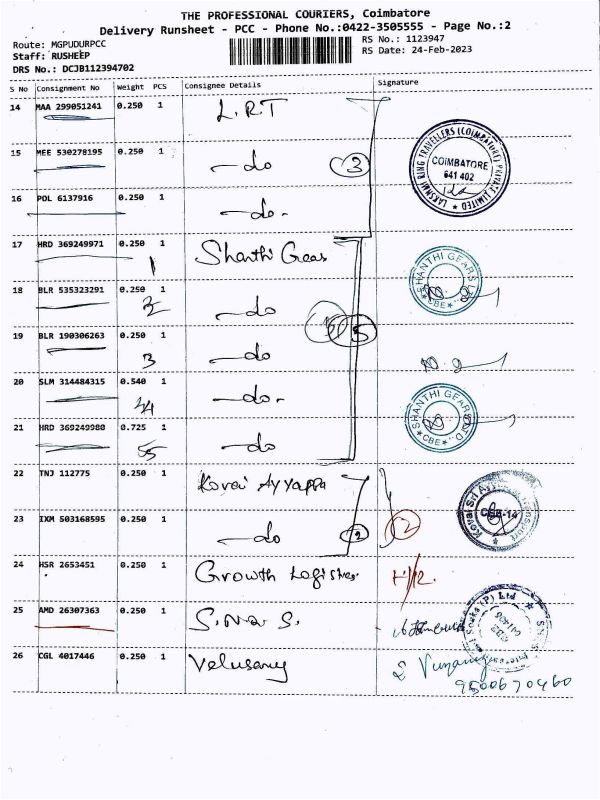 THE PROFESSIONAL COURIERS, Coimbatore
Delivery Runsheet - PCC - Phone No.:0422-3505555 - Page No.:2
Route: MGPUDURPCC
RS No.: 1123947
Staff: RUSHEEP
RS Date: 24-Feb-2023
DRS No.: DCJB112394702
S No Consignment No Weight PCS Consignee Details Signature
14 MAA 299051241 0.250 1 L.R.T
15 MEE 530278195 0.250 1 -do 3
LAKSHMI RING TRAVELLERS (COIMBATORE) PRIVATE LIMITED
COIMBATORE
641 402
16 POL 6137916 0.250 1 -do-
17 HRD 369249971 0.250 1 Shanthi Gears
1
SHANTHI GEARS LTD. CBE
18 BLR 535323291 0.250 1 -do
5
19 BLR 190306263 0.250 1 -do
3
20 SLM 314484315 0.540 1 -do-
SHANTHI GEARS LTD. CBE
21 HRD 369249980 0.725 1 -do
22 TNJ 112775 0.250 1 Kovai Ayyappa
Kovai Sri Ayyappa Transport
CBE-14
23 IXM 503168595 0.250 1 -do 2 2
24 HSR 2653451 0.250 1 Growth Logistics
25 AMD 26307363 0.250 1 S.N.Q S.
26 CGL 4017446 0.250 1 Velusamy
9500670460